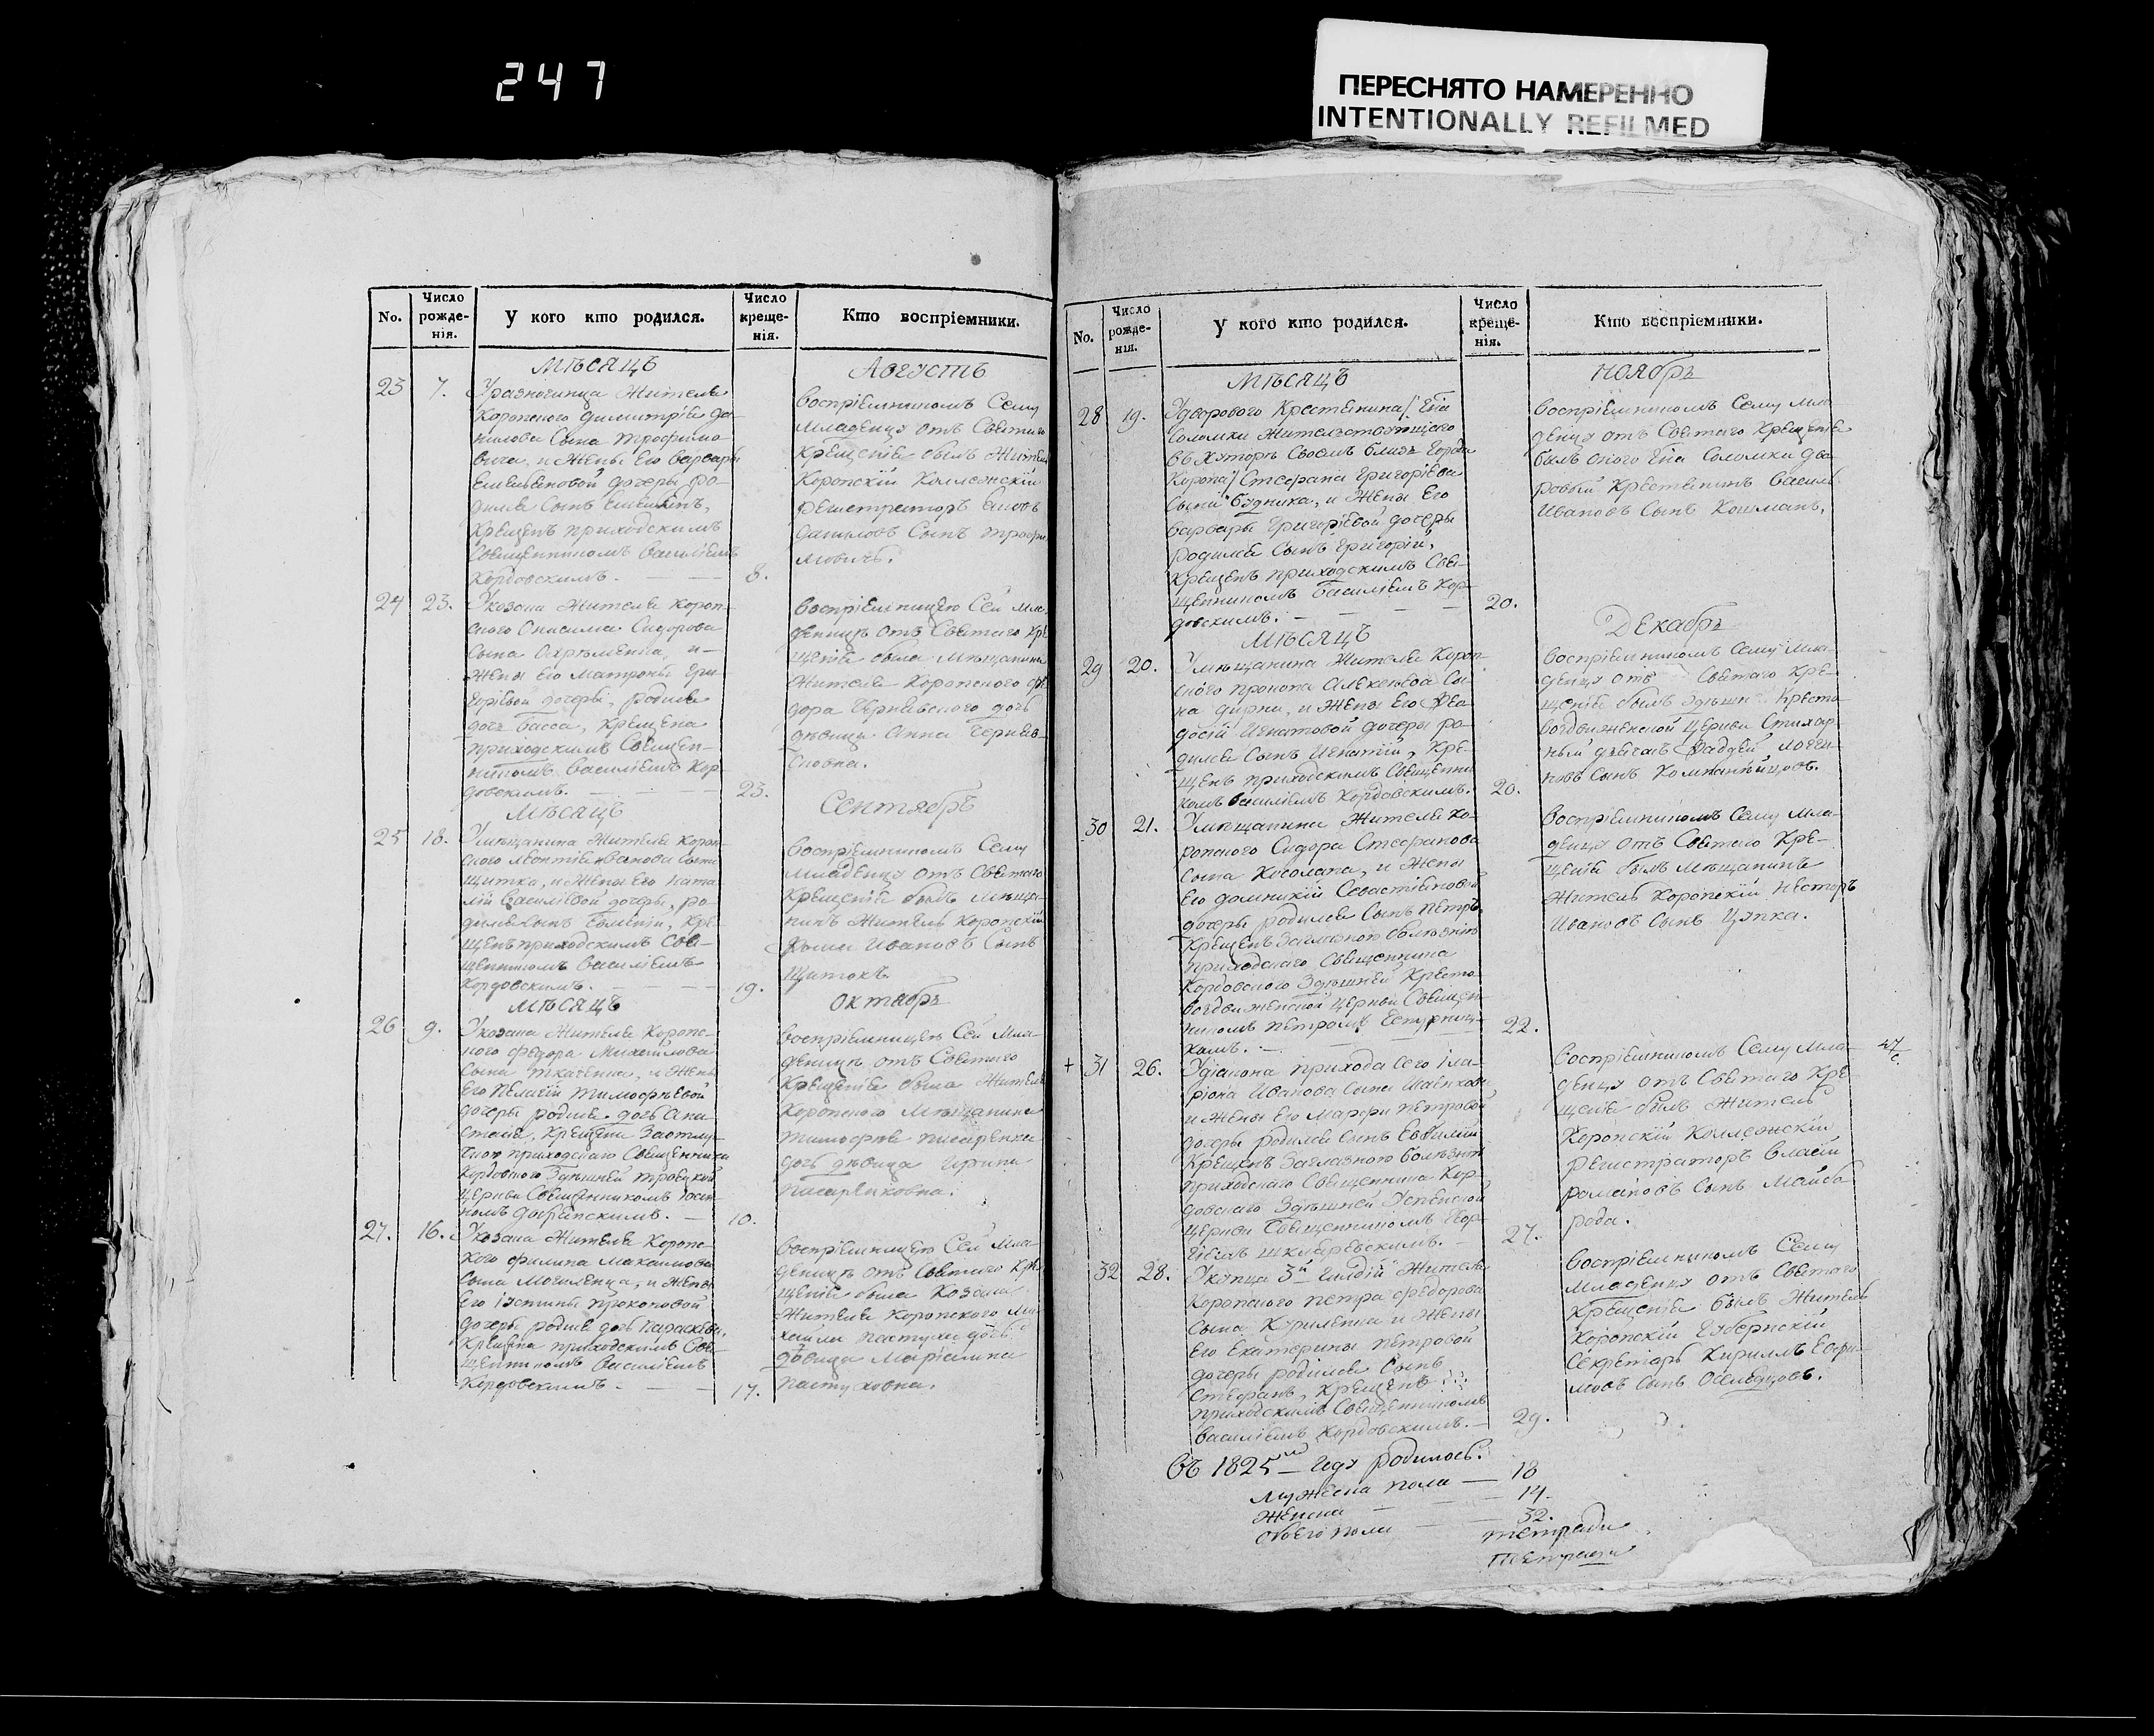 247
ПЕРЕСНЯТО НАМЕРЕННО
INTENTIONALLY REFILMED
No.
Число рожде-нія.
У кого кто родился.
Число креще-нія.
Кто воспріемники.
мѣсяцъ
Августъ
23
7.
Уразночинца Жителя
Коропского Димитрія Да-
нилова Сына Трофимо-
вича, и Жены Его Варвары
Емельяновой дочеры ро-
дился Сынъ Емельянъ,
Крещенъ приходскимъ
Священникомъ Василіемъ
Кордовскимъ.
8.
воспріемникомъ Сему
младенцу отъ Святаго
Крещенія былъ Житель
Коропскій Коллежскій
регистраторъ
Даниловъ Сынъ Трофи
мовичъ.
24
23.
Укозака Жителя короп-
ского Онисима Сидорова
Сына и
Жены Его Матроны Гри-
горіевой дочеры, родилась
дочь Васса, Крещена
приходскимъ Священ-
никомъ Василіемъ Кор-
довскимъ.
23.
воспріемницею Сей мла-
деницѣ отъ Святаго Кре
щенія была мѣщанина
Жителя Коропского Фе
дора Чернявского дочь
дѣвица Анна Черняв-
сковна.
мѣсяцъ
Сентябрь
25
18.
Умѣщанина Жителя Короп-
ского Леонтія Иванова Сына
Щитка, и Жены Его Ната-
ліи Василіевой дочеры, ро-
дился Сынъ Евменій, Кре-
щенъ приходскимъ Свя-
щенникомъ Василіемъ
Кордовскимъ.
19.
воспріемникомъ Сему
младенцу отъ Святаго
Крещенія былъ мѣща-
нинъ Житель Коропскій
Фома Ивановъ Сынъ
Щитокъ.
мѣсяцъ
октябрь
26
9.
Укозака Жителя Коропс-
кого Федора Михайлова
Сына Ткаченка, и Жены
Его Пелагіи Тимофѣевой
дочеры родилась дочь Ана-
стасія, Крещена Заотлу-
ч приходскаго Священника
Кордовского Здѣшней Троецкой
церкви Священникомъ
номъ
10.
воспріемницею Сей мла-
деницѣ отъ Святаго
Крещенія была Жителя
Коропского Мѣщанина
Тимофея Писаренка
дочь дѣвица Ирина
Писаренковна.
27.
16.
Укозака Жителя Коропс-
кого Филипа Макаимова
Сына Могиленца, и Жены
Его Іустины Прокоповой
дочеры родилась дочь Параскева,
Крещена приходскимъ Свя-
щенникомъ Василіемъ
Кордовскимъ.
17.
воспріемницею Сей мла-
деницѣ отъ Святаго Кре
щенія была Козака
Жителя Коропского Ми-
хайла Пастуха дочь
дѣвица Маріамна
Пастуховна.
No.
Число рожде-нія.
У кого кто родился.
Число креще-нія.
Кто воспріемники.
мѣсяцъ
ноябрь
28
19.
Удворового Крестянина
Соломки Жителствующаго
въ Хуторѣ Своемъ близъ Города
Коропа Стефана Григоріева
Сына Будника, и Жены Его
Варвары Григоріевой дочеры
родился Сынъ Григорій,
Крещенъ приходскимъ Свя-
щенникомъ Василіемъ Кор-
довскимъ.
20.
воспріемникомъ Сему мла
денцу отъ Святаго Крещенія
былъ оного Соломки Дво-
ровый Крестянинъ Василь
Ивановъ Сынъ Кошманъ.
мѣсяцъ
Декабрь
29
20.
Умѣщанина Жителя Короп-
ского Прокопа Алексѣева Сы-
на Дирки, и Жены Его Фео-
досіи Игнатовой дочеры ро-
дился Сынъ Игнатій, Кре-
щенъ приходскимъ Священни
комъ Василіемъ Кордовскимъ.
20.
воспріемникомъ Сему мла-
денцу отъ Святаго Кре-
щенія былъ Здѣшн Кресто
воздвиженской церкви Стихар-
ный дьячокъ Фаддей Логги-
новъ Сынъ Компанѣйцовъ.
30
21.
Умѣщанина Жителя Ко-
ропского Сидора Стефанова
Сына Косолапа, и Жены
Его Домникіи Севастіановой
дочеры родился Сынъ Петръ,
Крещенъ Заглазною болѣзнію
приходскаго Священника
Кордовского Здѣшней Кресто
воздвиженской церкви Священ-
никомъ Петромъ
комъ.
22.
воспріемникомъ Сему мла-
денцу отъ Святаго Кре-
щенія былъ мѣщанинъ
Житель Коропскій Несторъ
Ивановъ Сынъ Цупка.
+ 31
26.
Удіакона прихода Сего Ила-
ріона Иванова Сына
и Жены Его Марфы Петровой
дочеры родился Сынъ Евѳимій
Крещенъ Заглазною болѣзнію
приходскаго Священника Кор-
довскаго Здѣшней Успенской
церкви Священникомъ Геор-
гіемъ Шкляревскимъ.
27.
воспріемникомъ Сему мла-
денцу отъ Святаго Кре-
щенія былъ Житель
Коропскій Коллежскій
регистраторъ Власій
Романовъ Сынъ Майбо
рода.
32
28.
Укупца 3й Гилдіи Жителя
Коропского Петра Федорова
Сына Куриленка и Жены
Его Екатерины Петровой
дочеры родился Сынъ
Стефанъ, Крещенъ
приходскимъ Священникомъ
Василіемъ Кордовскимъ.
29.
воспріемникомъ Сему
младенцу отъ Святаго
Крещенія былъ Житель
Коропскій Губернскій
Секретарь Кириллъ Ефи-
мовъ Сынъ Оселедцовъ.
въ 1825м Году родилось:
мужеска пола — 18
Женска — 14.
обоего пола — 32.
тетради
тетради